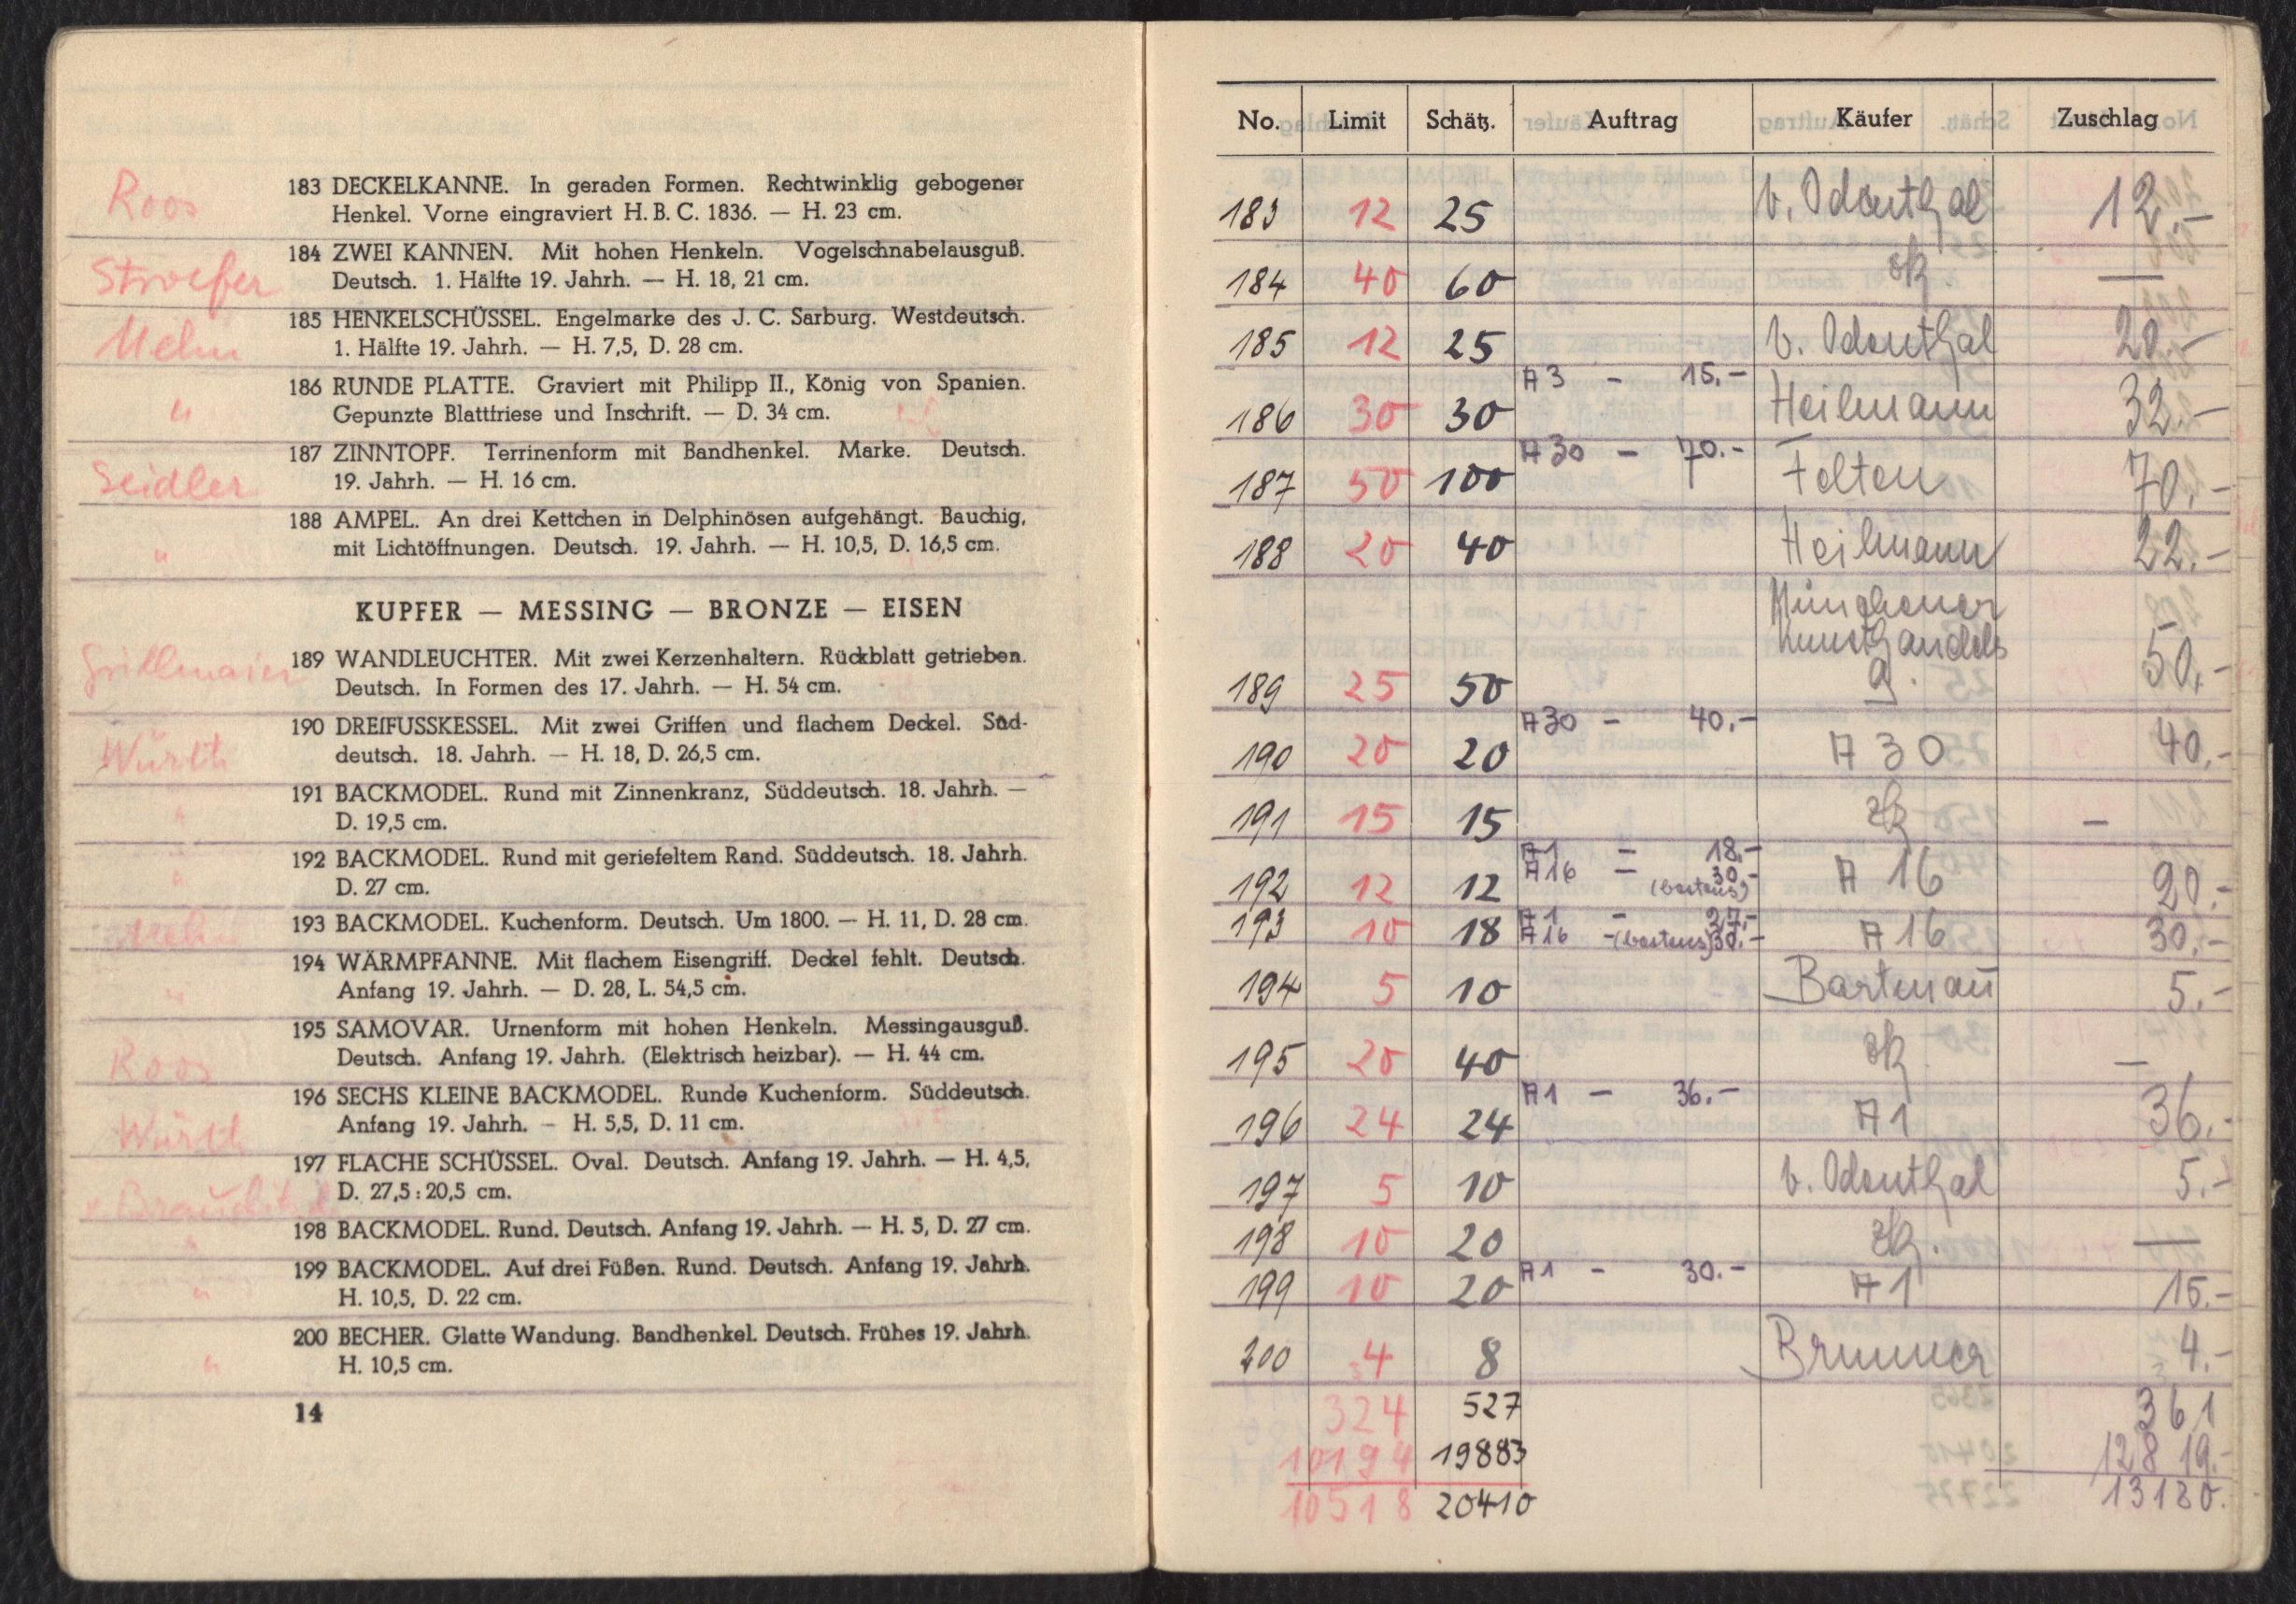 Roos
183 DECKELKANNE. In geraden Formen. Rechtwinklig gebogener
Henkel. Vorne eingraviert H. B. C. 1836. — H. 23 cm.
Stroefer
184 ZWEI KANNEN. Mit hohen Henkeln. Vogelschnabelausguß.
Deutsch. 1. Hälfte 19. Jahrh. — H. 18, 21 cm.
185 HENKELSCHÜSSEL. Engelmarke des J. C. Sarburg. Westdeutsch.
1. Hälfte 19. Jahrh. — H. 7,5, D. 28 cm.
"
186 RUNDE PLATTE. Graviert mit Philipp II., König von Spanien.
Gepunzte Blattfriese und Inschrift. — D. 34 cm.
Seidler
187 ZINNTOPF. Terrinenform mit Bandhenkel. Marke. Deutsch.
19. Jahrh. — H. 16 cm.
"
188 AMPEL. An drei Kettchen in Delphinösen aufgehängt. Bauchig,
mit Lichtöffnungen. Deutsch. 19. Jahrh. — H. 10,5, D. 16,5 cm.
KUPFER — MESSING — BRONZE — EISEN
Grillmaier
189 WANDLEUCHTER. Mit zwei Kerzenhaltern. Rückblatt getrieben.
Deutsch. In Formen des 17. Jahrh. — H. 54 cm.
Würth
190 DREIFUSSKESSEL. Mit zwei Griffen und flachem Deckel. Süd-
deutsch. 18. Jahrh. — H. 18, D. 26,5 cm.
"
191 BACKMODEL. Rund mit Zinnenkranz, Süddeutsch. 18. Jahrh. —
D. 19,5 cm.
"
192 BACKMODEL. Rund mit geriefeltem Rand. Süddeutsch. 18. Jahrh.
D. 27 cm.
193 BACKMODEL. Kuchenform. Deutsch. Um 1800. — H. 11, D. 28 cm.
"
194 WÄRMPFANNE. Mit flachem Eisengriff. Deckel fehlt. Deutsch.
Anfang 19. Jahrh. — D. 28, L. 54,5 cm.
Roos
195 SAMOVAR. Urnenform mit hohen Henkeln. Messingausguß.
Deutsch. Anfang 19. Jahrh. (Elektrisch heizbar). — H. 44 cm.
Würth
196 SECHS KLEINE BACKMODEL. Runde Kuchenform. Süddeutsch.
Anfang 19. Jahrh. — H. 5,5, D. 11 cm.
v. Brauchitsch
197 FLACHE SCHÜSSEL. Oval. Deutsch. Anfang 19. Jahrh. — H. 4,5,
D. 27,5 : 20,5 cm.
"
198 BACKMODEL. Rund. Deutsch. Anfang 19. Jahrh. — H. 5, D. 27 cm.
"
199 BACKMODEL. Auf drei Füßen. Rund. Deutsch. Anfang 19. Jahrh.
H. 10,5, D. 22 cm.
"
200 BECHER. Glatte Wandung. Bandhenkel. Deutsch. Frühes 19. Jahrh.
H. 10,5 cm.
14
No. Limit Schätz. Auftrag Käufer Zuschlag
183 12 25 v. Odenthal 12.-
184 40 60 zk —
185 12 25 v. Odenthal 20.-
A3 - 15.-
186 30 30 Heilmann 32.-
A30 - 70.-
187 50 100 Felten 70.-
188 20 40 Heilmann 22.-
Münchener
Kunsthandels
189 25 50 G. 50.-
A30 - 40.-
190 20 20 A 30 40.-
191 15 15 zk —
A1 - 18.-
A16 - 30.-
192 12 12 (bestens) A 16 20.-
A1 - 27.-
193 10 18 A16 - (bestens) 30.- A 16 30.-
194 5 10 Bartenau 5.-
195 20 40 zk —
A1 - 36.-
196 24 24 A1 36.-
197 5 10 v. Odenthal 5.-
198 10 20 zk. —
A1 - 30.-
199 10 20 A1 15.-
200 4 8 Brunner 4.-
324 527 361
10194 19883 12819.-
10518 20410 13180.